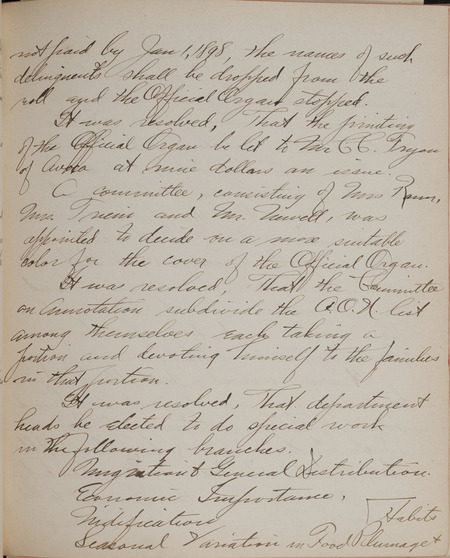 not paid by Jan 1, 1898 the names of such
delinquents shall be dropped from the
roll and the Official Organ stopped.
It was resolved, That the printing
of the Official Organ be let to Mr C C. Tryon
of Avoca at nine dollars an issue.
A committee, consisting of
Mrs. and Mr. Newell, was
appointed to decide on a more suitable
color for the cover of the Official Organ.
It was resolved, That the Committee
on Annotation subdivide the A.O.U. list
among themselves each taking a
portion and devoting himself to the families
in that portion.
It was resolved, That department
heads be elected to do special work
in the following branches.
Migration & General Distribution.
Economic Importance,
Nidification
Habits
Seasonal Variation in Food Plumage &